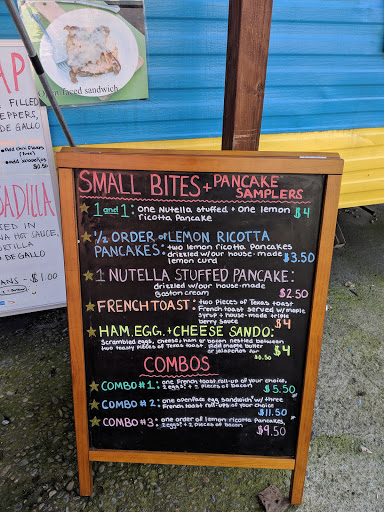 Open faced sandwich
AP
FILLED
EPPERS,
DE GALLO
Add
Add
$0.50
SADILLA
SED IN
HOT SAUCE,
DE GALLO
ANS - $1.00
SMALL BITES + PANCAKE
SAMPLERS
1 and 1: one Nutella stuffed + one lemon
ricotta Pancake $4
1/2 ORDER of LEMON RICOTTA
PANCAKES: two lemon ricotta Pancakes
drizzled w/our house-made
lemon curd $3.50
1 NUTELLA STUFFED PANCAKE:
drizzled w/our house-made
Boston cream $2.50
FRENCH TOAST: two pieces of Texas toast
French toast served w/maple
syrup + house-made triple
berry sauce $4
HAM, EGG, + CHEESE SANDO:
Scrambled eggs, cheese, ham or bacon nestled between
two toasty pieces of Texas toast. Add maple butter
or jalapeños for $0.50 $4
COMBOS
COMBO #1: one French toast roll-up of your choice,
2 eggs! + 2 pieces of bacon $5.50
COMBO #2: one openface egg sandwich w/ three
French toast roll-ups of your choice
$11.50
COMBO #3: one order of lemon ricotta pancakes,
2 eggs! + 2 pieces of bacon
$9.50